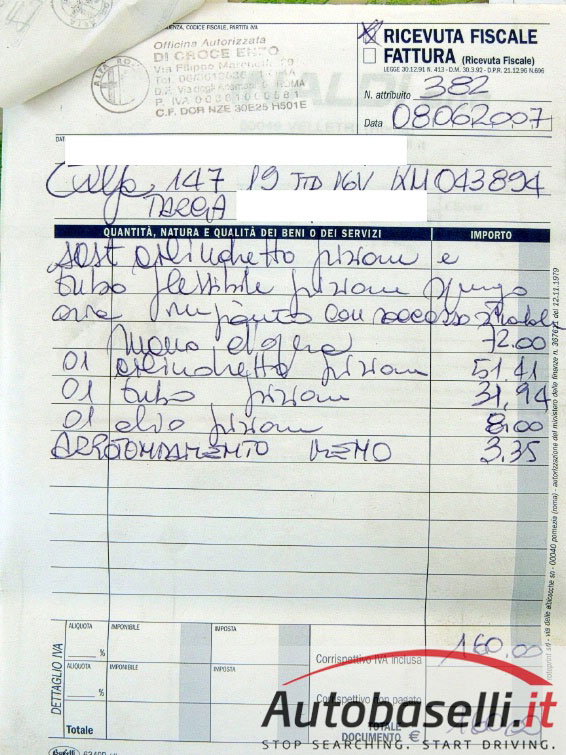 ENZA, CODICE FISCALE, PARTITA IVA
Officina Autorizzata
DI CROCE ENZO
P. IVA
C.F. DCR NZE 30E25 H501E
RICEVUTA FISCALE
FATTURA (Ricevuta Fiscale)
LEGGE 30.12.91 N. 413 - D.M. 30.3.92 - D.P.R. 21.12.96 N.696
N. attribuito 382
Data 08062007
Alfa 147 19 JTD 16V KM 043894
TARGA
QUANTITÀ, NATURA E QUALITÀ DEI BENI O DEI SERVIZI IMPORTO
sost cilindretto frizione e
tubo flessibile frizione spurgo
aria impianto con
mano d'opera 72.00
01 cilindretto frizione 51,41
01 tubo frizione 31,94
01 olio frizione 8.00
ARROTONDAMENTO MENO 3.35
DETTAGLIO IVA
ALIQUOTA IMPONIBILE IMPOSTA
%
Corrispettivo IVA inclusa 160,00
ALIQUOTA IMPONIBILE IMPOSTA
%
Corrispettivo non pagato
Totale
TOTALE DOCUMENTO € 160,00
Autobaselli.it
STOP SEARCHING. START DRIVING.